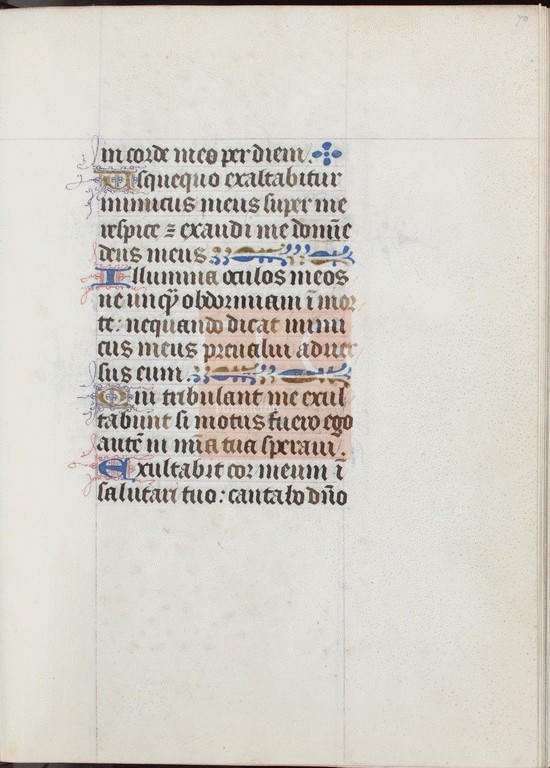 70
in corde meo per diem.
Usquequo exaltabitur
inimicus meus super me
respice ⁊ exaudi me domīe
deus meus.
Illumina oculos meos
ne unqȝ obdormiam ī mor
te: nequando dicat inimi
cus meus preualui aduer
sus eum.
Qui tribulant me exul
tabunt si motus fuero ego
autē in mīa tua speraui.
Exultabit cor meum ī
salutari tuo: cantabo dño